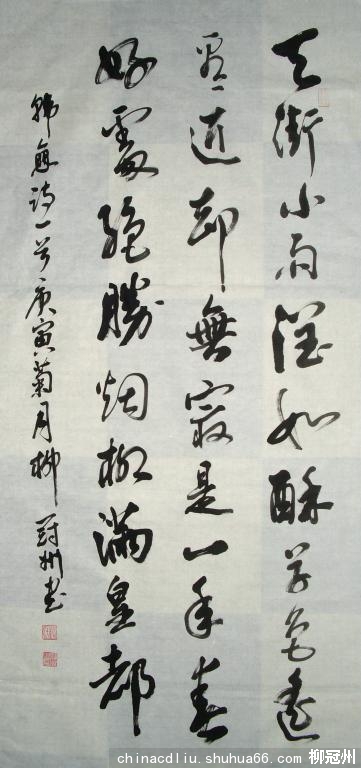 天街小雨潤如酥草色遥
看近却無最是一年春
好處絶勝烟柳滿皇都
韩愈诗一首庚寅菊月柳冠州书
chinacdliu.shuhua66.com
柳冠州